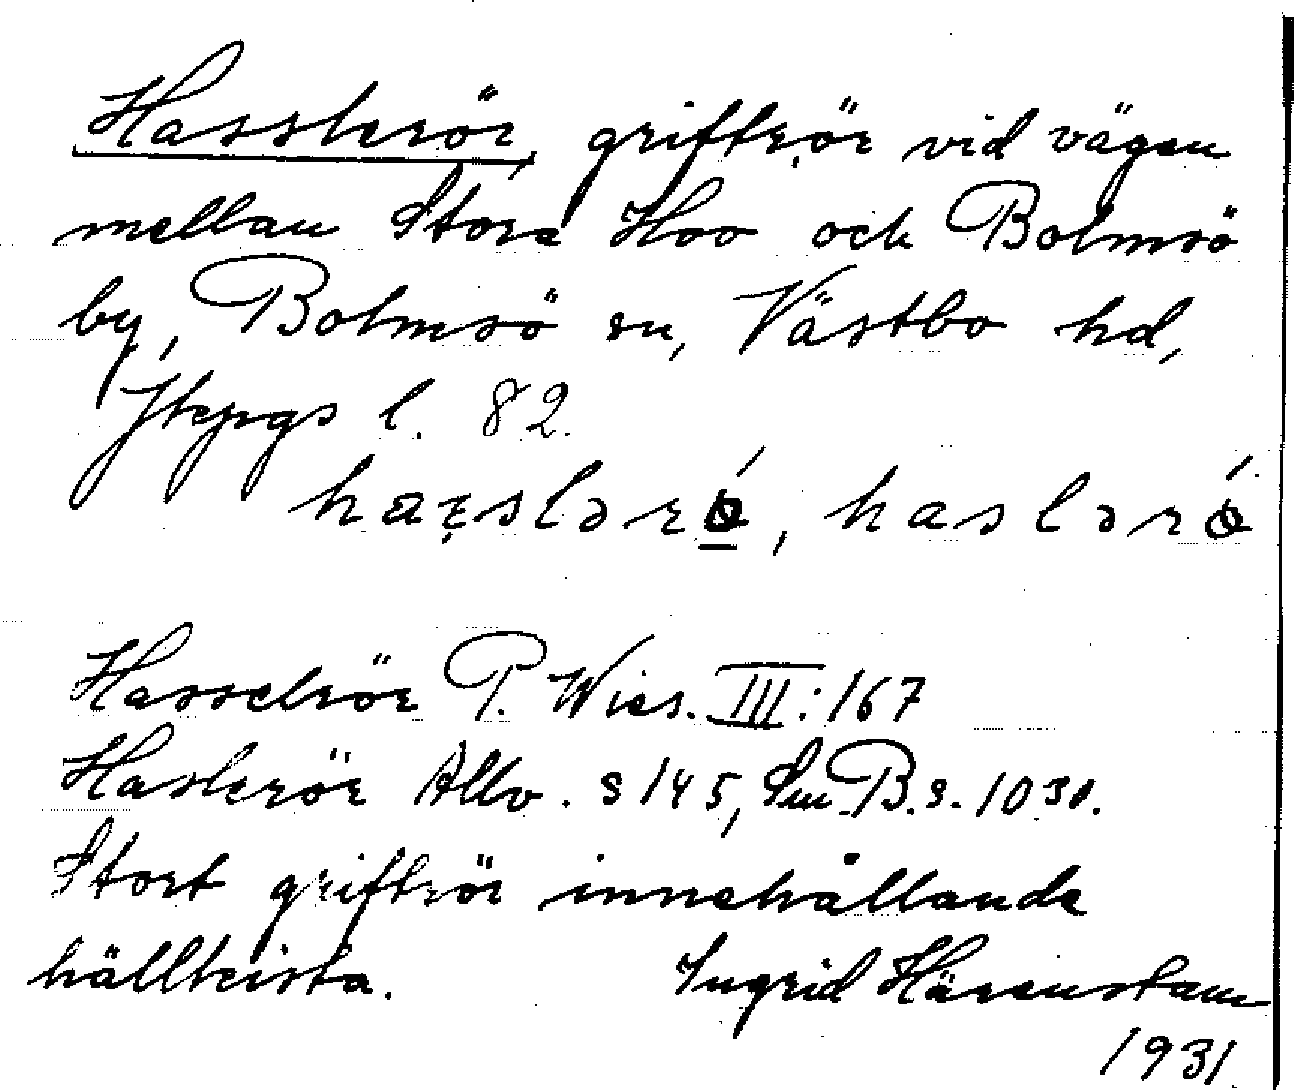 Hasslerör, griftrör vid vägen
mellan Stora Hov och Bolmsö
by, Bolmsö sn, Västbo hd,
Jkpgs l. 82.
haslərö́, haslərö́
Hasselrör P. Wies. III:167
Haslerör Allv. s 145, Sm B. s. 1030.
Stort griftrör innehållande
hällkista. Ingrid Härenstam
1931